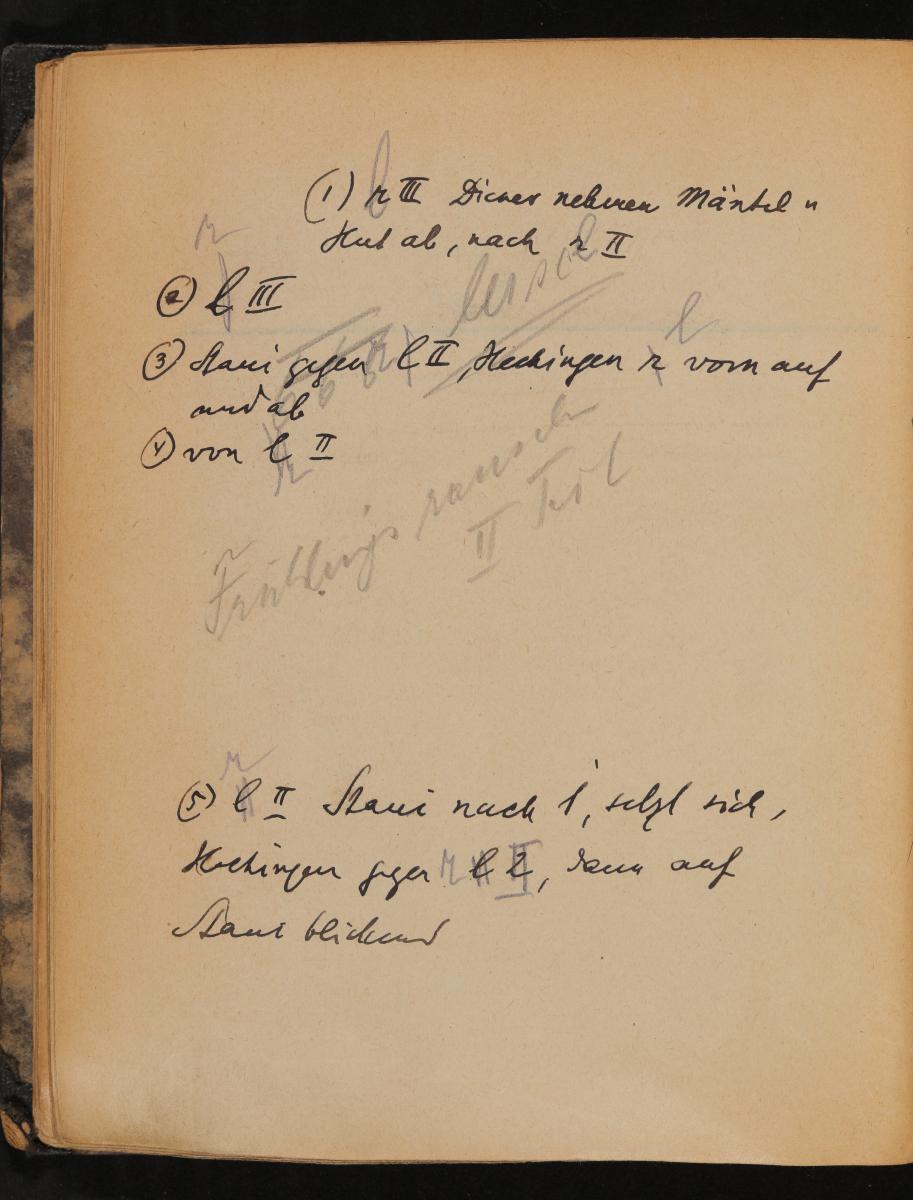 (1) r III Diener nehmen Mäntel u
Hut ab, nach r II
l
r
(2) l III
leise
l
(3) Stani gegen l II, Hechingen r vorn auf
und ab
(4) von l II
r
Frühlingsrausch
II Teil
r
(5) l II Stani nach 1, setzt sich,
Hechingen gegen r II l 2, dann auf
Stani blickend